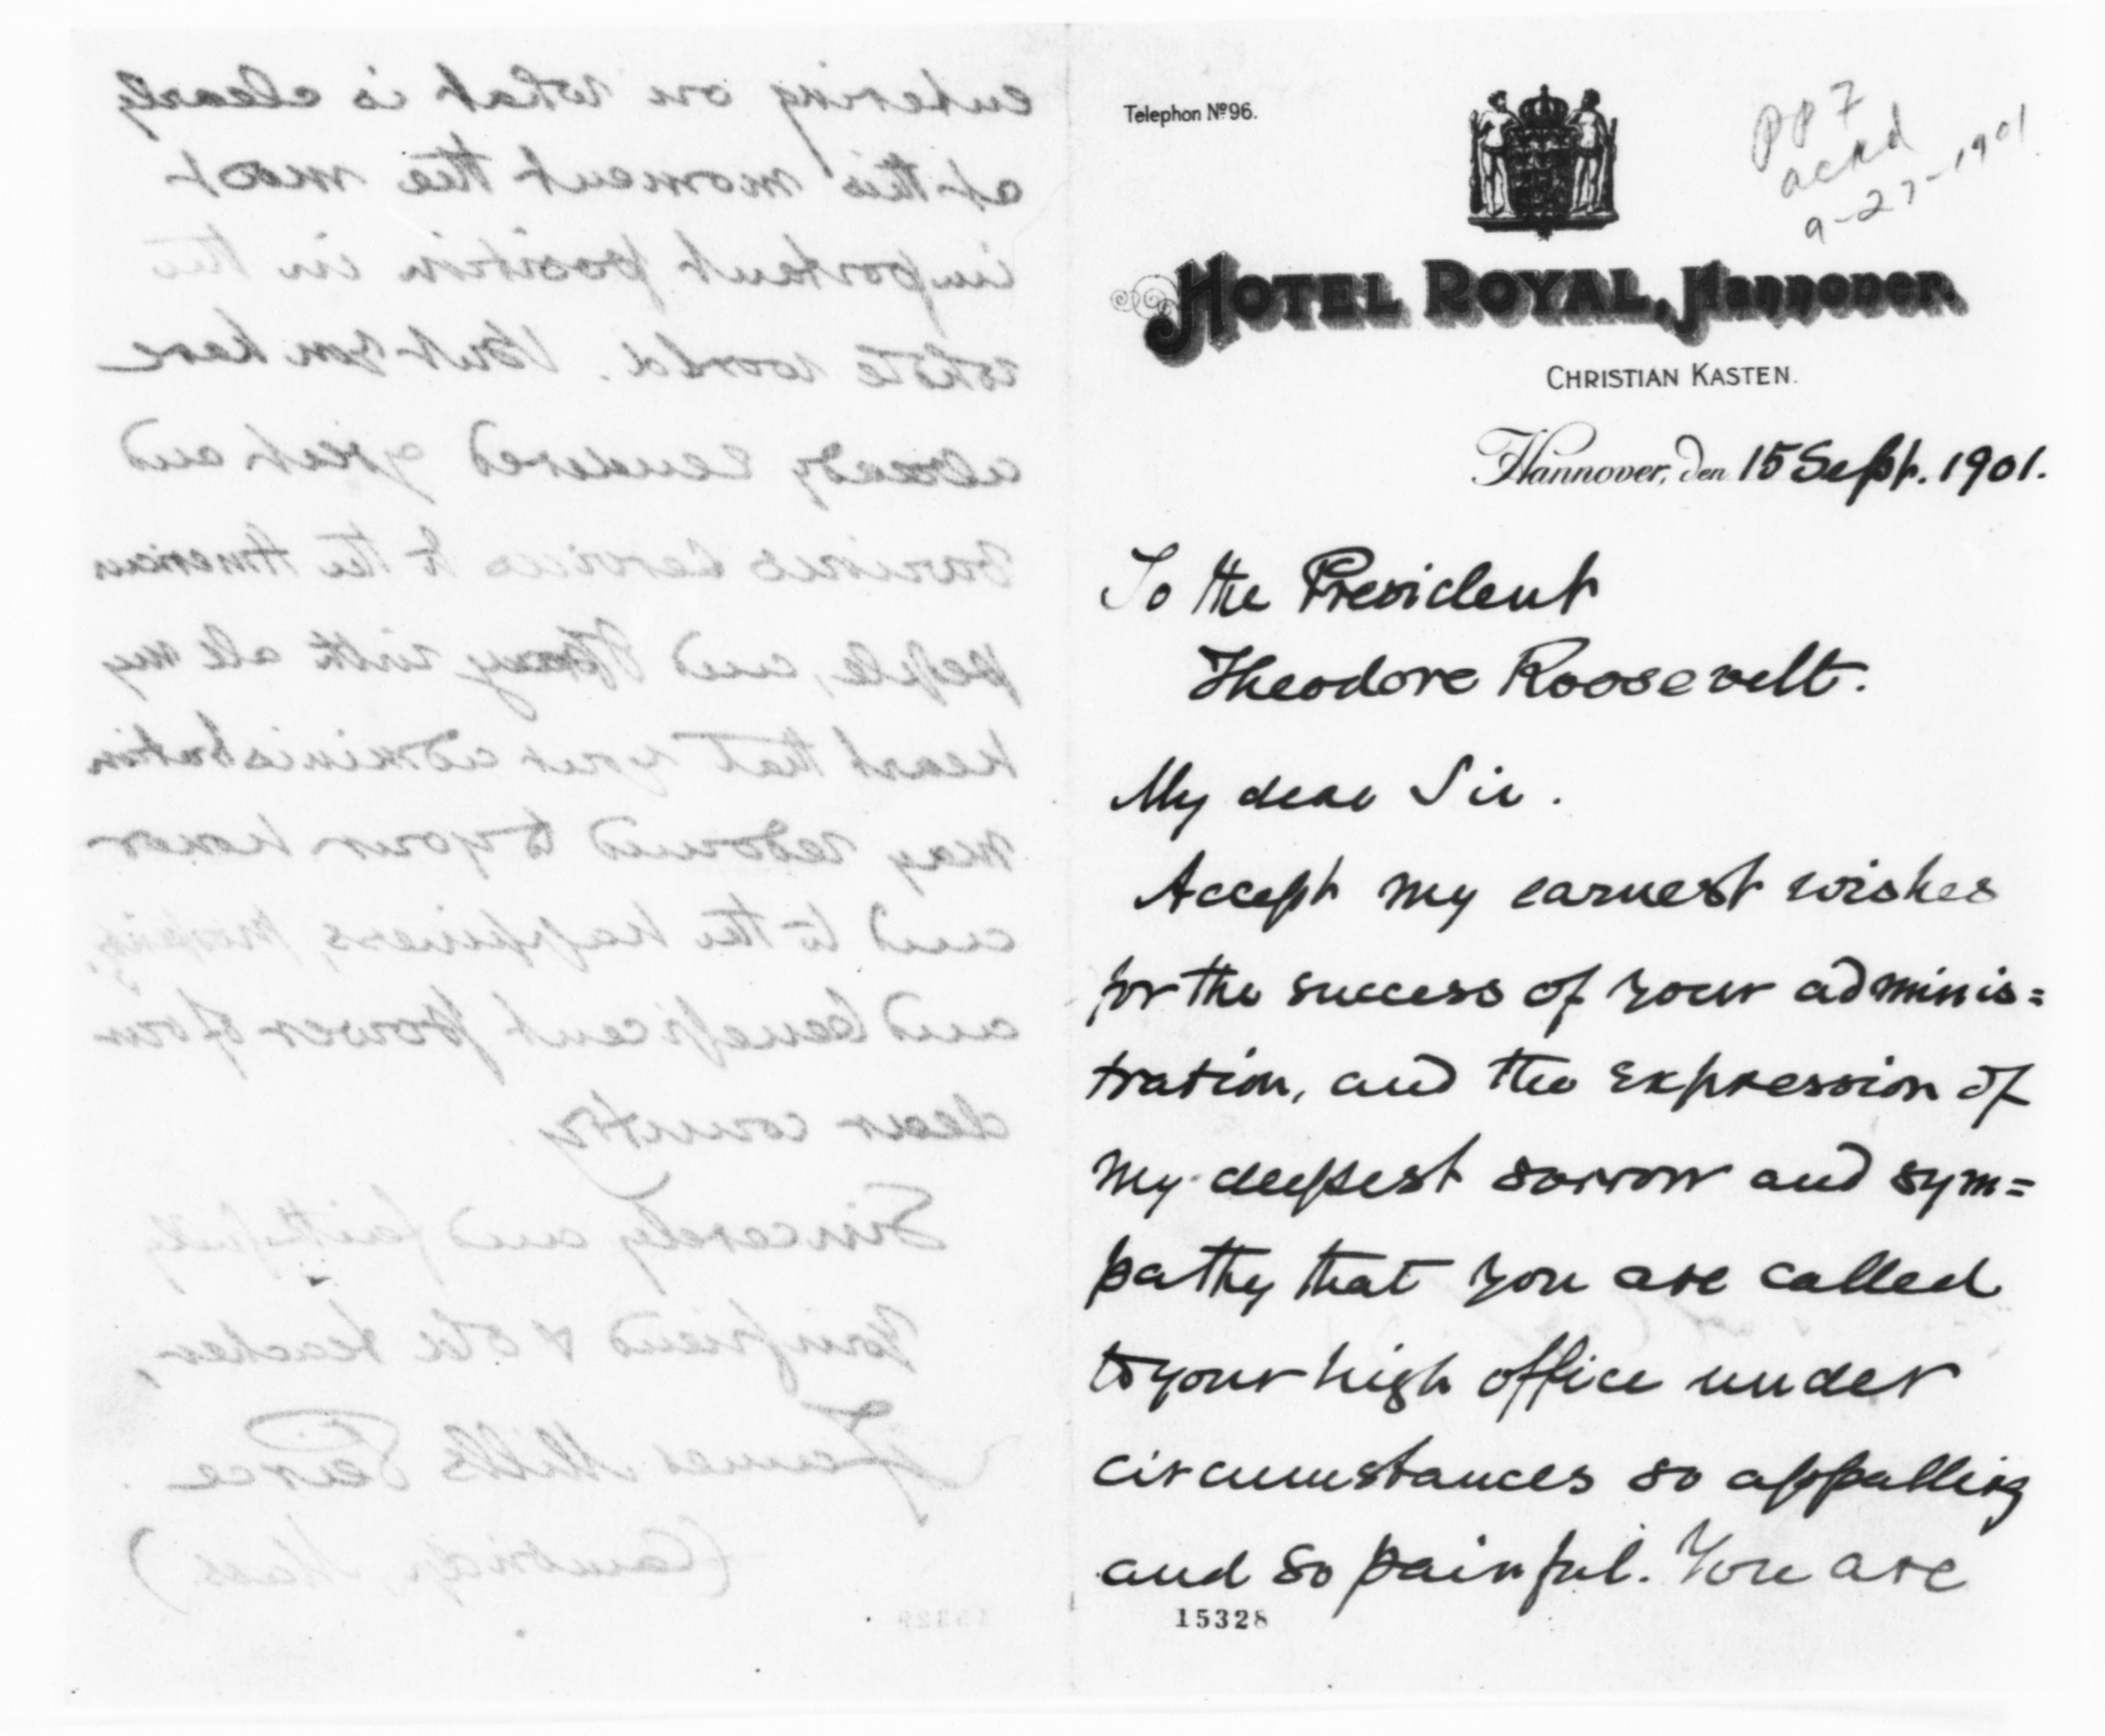 Telephon Nº 96.
PPF
ackd
9-27-1901
HOTEL ROYAL, Hannover.
CHRISTIAN KASTEN.
Hannover, den 15 Sept. 1901.
To the President
Theodore Roosevelt.
My dear Sir.
Accept my earnest wishes
for the success of your adminis=
tration, and the expression of
my deepest sorrow and sym=
pathy that you are called
to your high office under
circumstances so appalling
and so painful. You are
15328
entering on what is clearly
at this moment the most
important position in the
whole world. But you have
already rendered great and
various services to the American
people, and I pray with all my
heart that your administration
may redound to your honor
and to the happiness,
and beneficent power of our
dear country.
Sincerely and faithfully
Your friend & old teacher,
James Mills Peirce
(Cambridge, Mass.)
15329